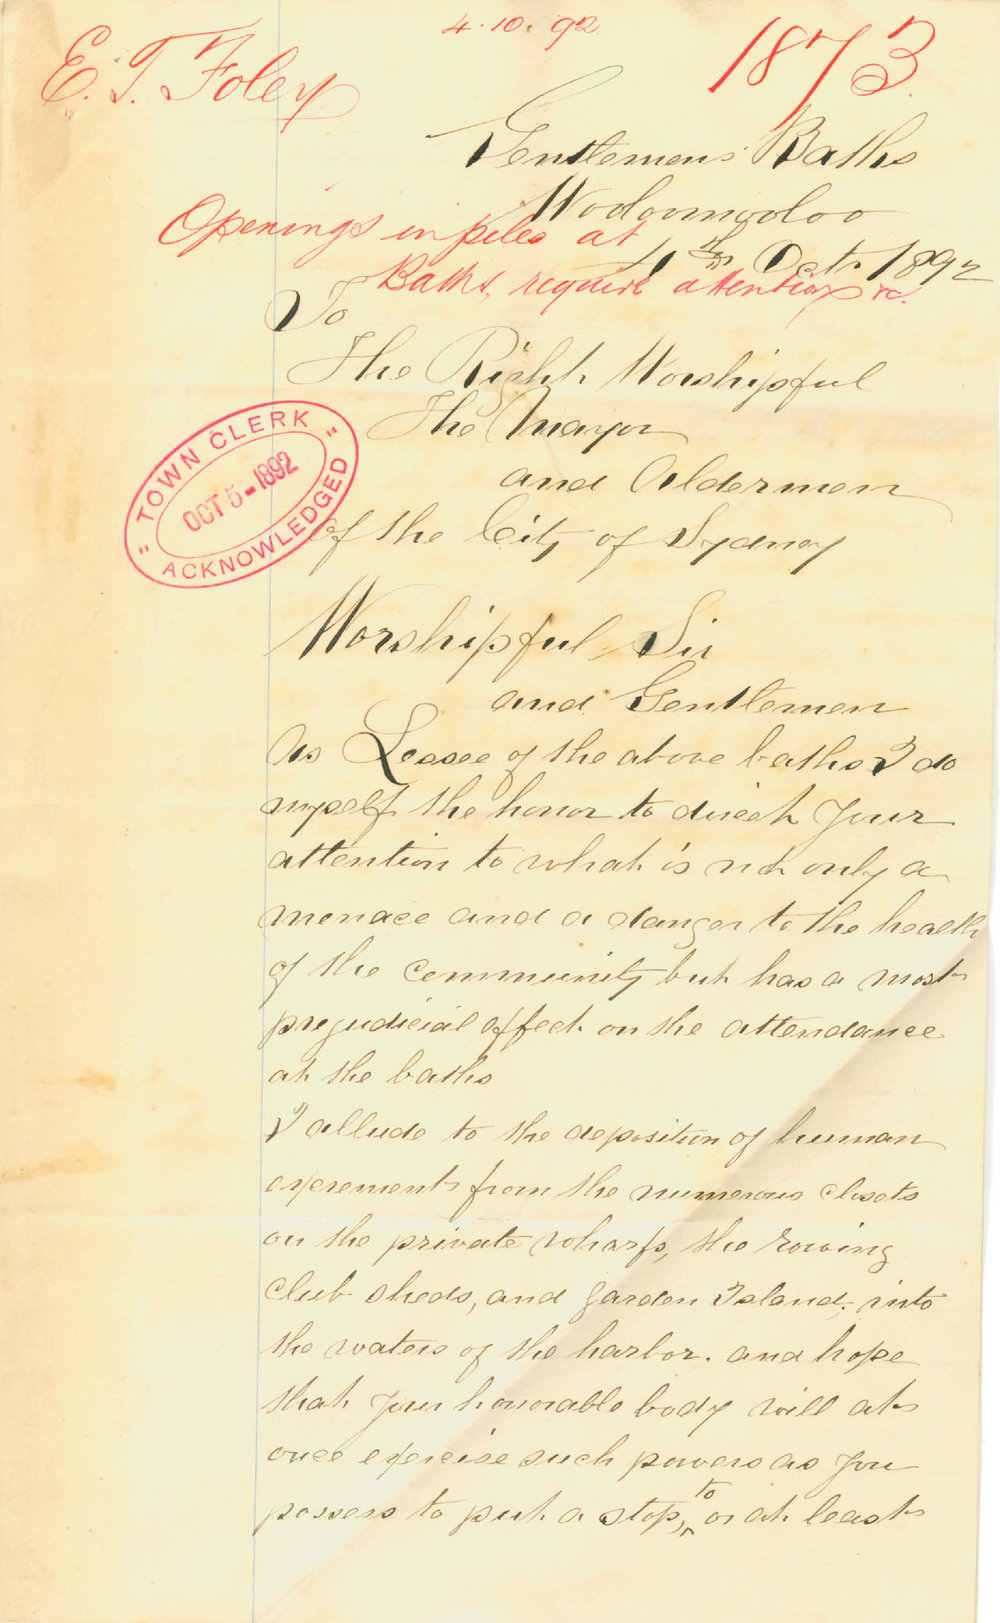 4.10.92.
1873.
E. T. Foley
Gentlemens Baths
Wooloomooloo
Openings in piles at
4th Oct. 1892
Baths, require attention &c.
To
The Right Worshipful
The Mayor
and Aldermen
of the City of Sydney
" TOWN CLERK "
OCT 5-1892
ACKNOWLEDGED
Worshipful Sir
and Gentlemen
As Lessee of the above baths I do
myself the honor to direct your
attention to what is not only a
menace and a danger to the health
of the community but has a most
prejudicial affect on the attendance
at the baths
I allude to the deposition of human
experements from the numerous closets
on the private wharfs, the rowing
club sheds, and Garden Island, into
the waters of the harbor. and hope
that your honorable body will at
once exercise such powers as you
possess to put a stop, to or at least